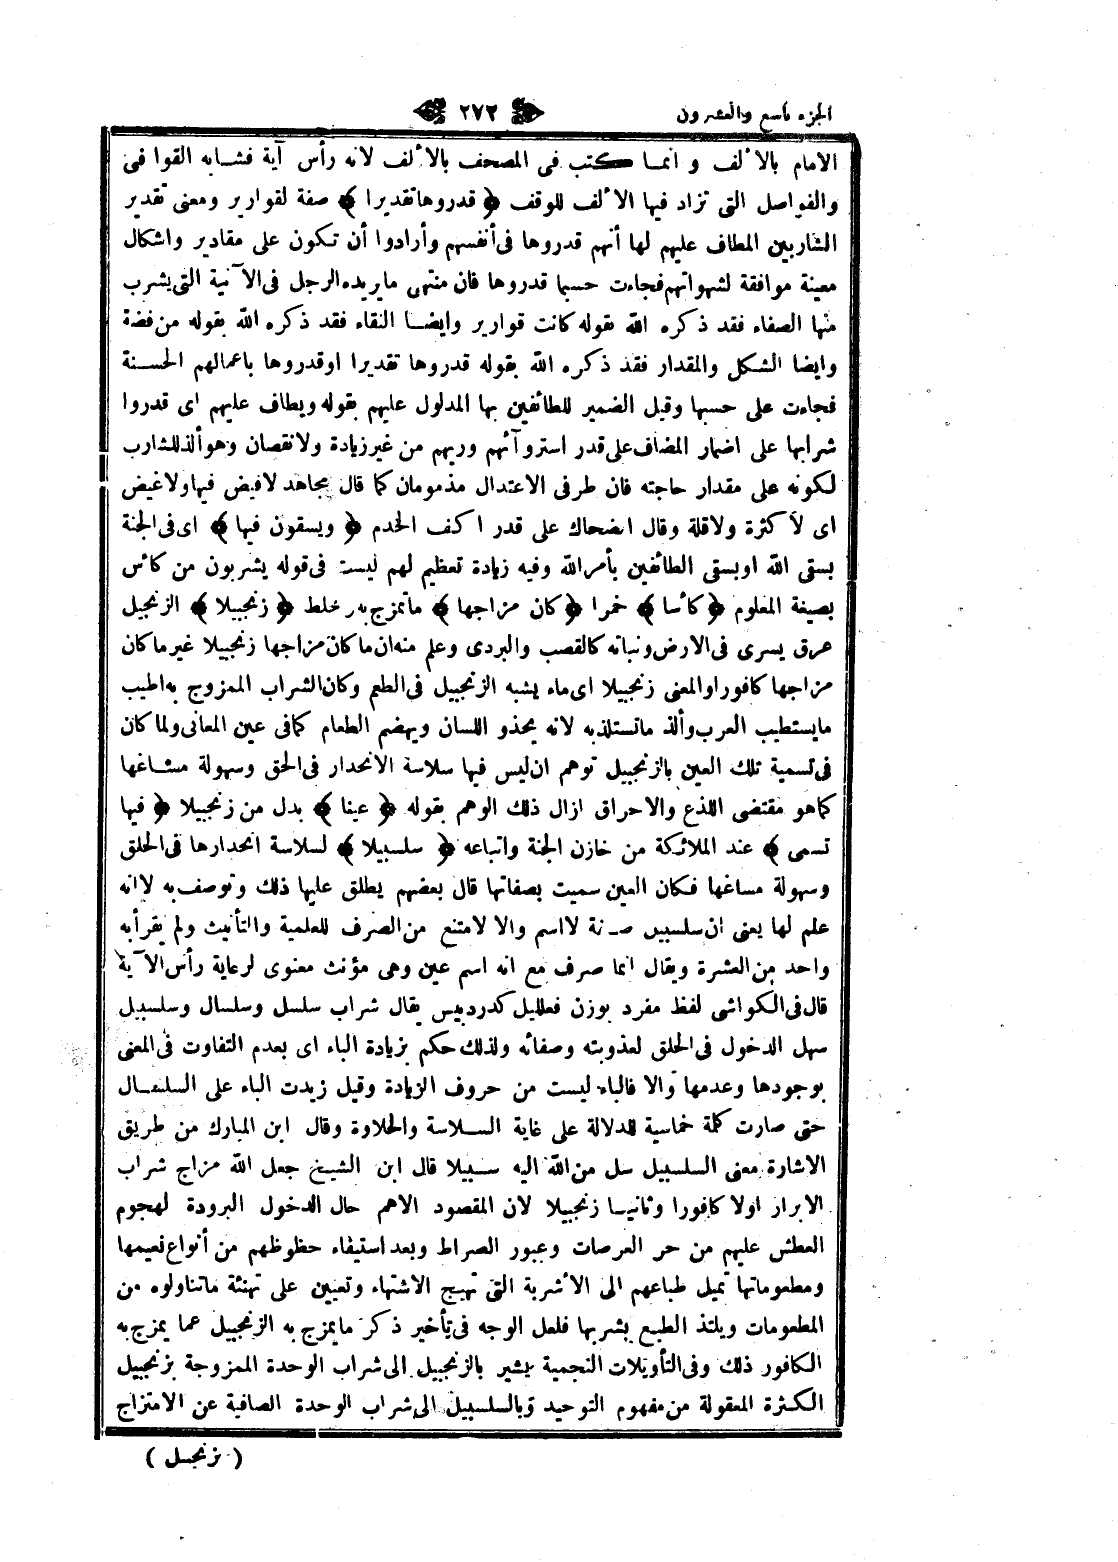 الجزء تاسع والعشرون ٢٧٢
الامام بالألف وانما كتب فى المصحف بالألف لانه رأس آية فشابه القوافى
والفواصل التى تزاد فيها الالف للوقف ﴿ قدروها تقديرا ﴾ صفة لقوارير ومعنى تقدير
الشاربين المطاف عليهم لها أنهم قدروها فى أنفسهم وأرادوا أن تكون على مقادير واشكال
معينة موافقة لشهواتهم فجاءت حسبما قدروها فان منتهى مايريده الرجل فى الآنية التى يشرب
منها الصفاء فقد ذكره الله بقوله كانت قوارير وايضا النقاء فقد ذكره الله بقوله من فضة
وايضا الشكل والمقدار فقد ذكره الله بقوله قدروها تقديرا اوقدروها باعمالهم الحسنة
فجاءت على حسبها وقيل الضمير للطائفين بها المدلول عليهم بقوله ويطاف عليهم اى قدروا
شرابها على اضمار المضاف على قدر استروآئهم وريهم من غير زيادة ولانقصان وهو ألذ للشارب
لكونه على مقدار حاجته فان طرفى الاعتدال مذمومان كما قال مجاهد لافيض فيها ولاغيض
اى لاكثرة ولاقلة وقال الضحاك على قدر اكف الخدم ﴿ ويسقون فيها ﴾ اى فى الجنة
يسقى الله اويسقى الطائفين بأمرالله وفيه زيادة تعظيم لهم ليست فى قوله يشربون من كأس
بصيغة المعلوم ﴿ كأسا ﴾ خمرا ﴿ كان مزاجها ﴾ ماتمزج به وخلط ﴿ زنجبيلا ﴾ الزنجبيل
عرق يسرى فى الارض ونباته كالقصب والبردى وعلم منه ان ماكان مزاجها زنجبيلا غير ماكان
مزاجها كافورا والمعنى زنجبيلا اى ماء يشبه الزنجبيل فى الطعم وكان الشراب الممزوج به اطيب
مايستطيب العرب وألذ ماتستلذ به لانه يحذو اللسان ويهضم الطعام كمافى عين المعانى ولما كان
فى تسمية تلك العين بالزنجبيل توهم ان ليس فيها سلاسة الانحدار فى الحلق وسهولة مساغها
كماهو مقتضى اللذع والاحراق ازال ذلك الوهم بقوله ﴿ عينا ﴾ بدل من زنجبيلا ﴿ فيها
تسمى ﴾ عند الملائكة من خازن الجنة واتباعه ﴿ سلسبيلا ﴾ لسلاسة انحدارها فى الحلق
وسهولة مساغها فكان العين سميت بصفاتها قال بعضهم يطلق عليها ذلك وتوصف به لاانه
علم لها يعنى ان سلسبيل صفة لااسم والا لامتنع من الصرف للعلمية والتأنيث ولم يقرأ به
واحد من العشرة ويقال انما صرف مع انه اسم عين وهى مؤنث معنوى لرعاية رأس الآية
قال فى الكواشى لفظ مفرد بوزن فعلليل كدردبيس يقال شراب سلسل وسلسال وسلسبيل
سهل الدخول فى الحلق لعذوبته وصفائه ولذلك حكم بزيادة الباء اى بعدم التفاوت فى المعنى
بوجودها وعدمها والا فالباء ليست من حروف الزيادة وقيل زيدت الباء على السلسال
حتى صارت كلمة خماسية للدلالة على غاية السلاسة والحلاوة وقال ابن المبارك من طريق
الاشارة معنى السلسبيل سل من الله اليه سبيلا قال ابن الشيخ جعل الله مزاج شراب
الابرار اولا كافورا وثانيا زنجبيلا لان المقصود الاهم حال الدخول البرودة لهجوم
العطش عليهم من حر العرصات وعبور الصراط وبعد استيفاء حظوظهم من أنواع نعيمها
ومطعوماتها تميل طباعهم الى الأشربة التى تهيج الاشتهاء وتعيين على تهنئة ماتناولوه من
المطعومات ويلتذ الطبع بشربها فلعل الوجه فى تأخير ذكر مايمزج به الزنجبيل عما يمزج به
الكافور ذلك وفى التأويلات النجمية يشير بالزنجبيل الى شراب الوحدة الممزوجة بزنجبيل
الكثرة المعقولة من مفهوم التوحيد وبالسلسبيل الى شراب الوحدة الصافية عن الامتزاج
( بزنجبيل )